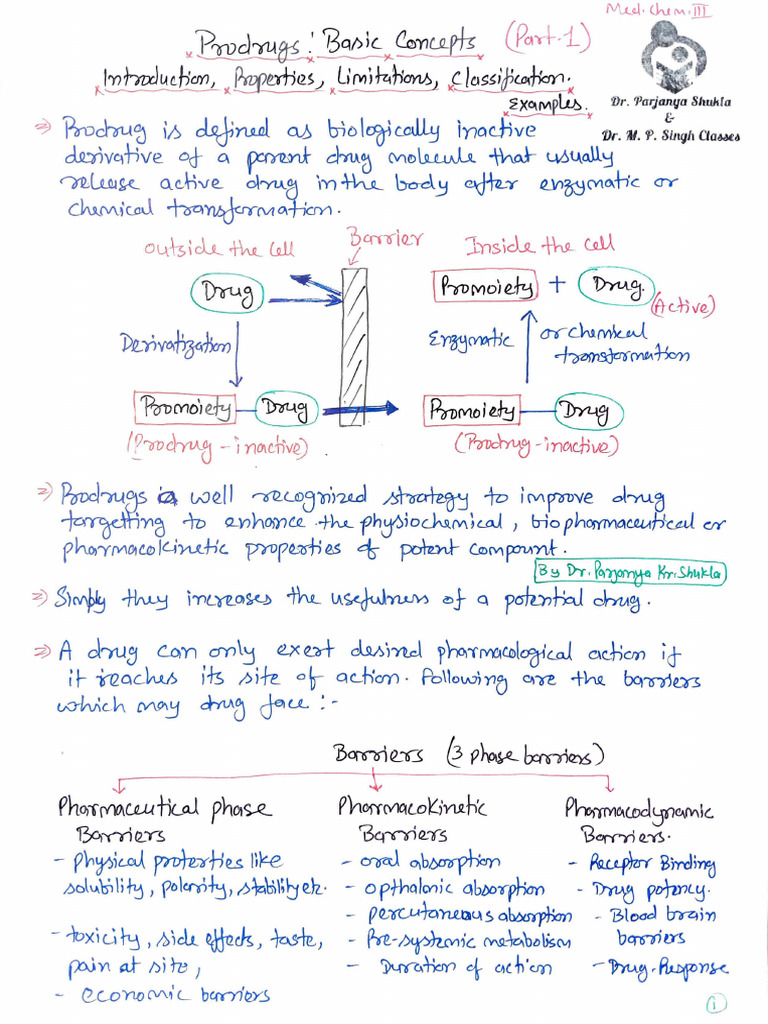 Med. Chem. III
Prodrugs: Basic Concepts (Part-1)
Introduction, Properties, Limitations, Classification.
Examples.
Dr. Parjanya Shukla
&
Dr. M. P. Singh Classes
⇒ Prodrug is defined as biologically inactive
derivative of a parent drug molecule that usually
release active drug in the body after enzymatic or
chemical transformation.
Outside the Cell
Barrier
Inside the Cell
Drug
Promoiety + Drug
(Active)
Derivatization
Enzymatic
or chemical
transformation
Promoiety Drug
Promoiety Drug
(Prodrug-inactive)
(Prodrug-inactive)
⇒ Prodrugs is well recognized strategy to improve drug
targetting to enhance the physiochemical, biopharmaceutical or
pharmacokinetic properties of potent compount.
By Dr. Parjanya Kr. Shukla
⇒ Simply they increases the usefulness of a potential drug.
⇒ A drug can only exert desired pharmacological action if
it reaches its site of action. Following are the barriers
which may drug face :-
Barriers (3 phase barriers)
Pharmaceutical phase
Barriers
- Physical proterties like
solubility, polarity, stability etc.
- toxicity, side effects, taste,
pain at site,
- economic barriers
Pharmacokinetic
Barriers
- oral absorption
- opthalonic absorption
- percutaneous absorption
- Pre-systemic metabolism
- Duration of action
Pharmacodynamic
Barriers.
- Receptor Binding
- Drug potency.
- Blood brain
barriers
- Drug-Response
1